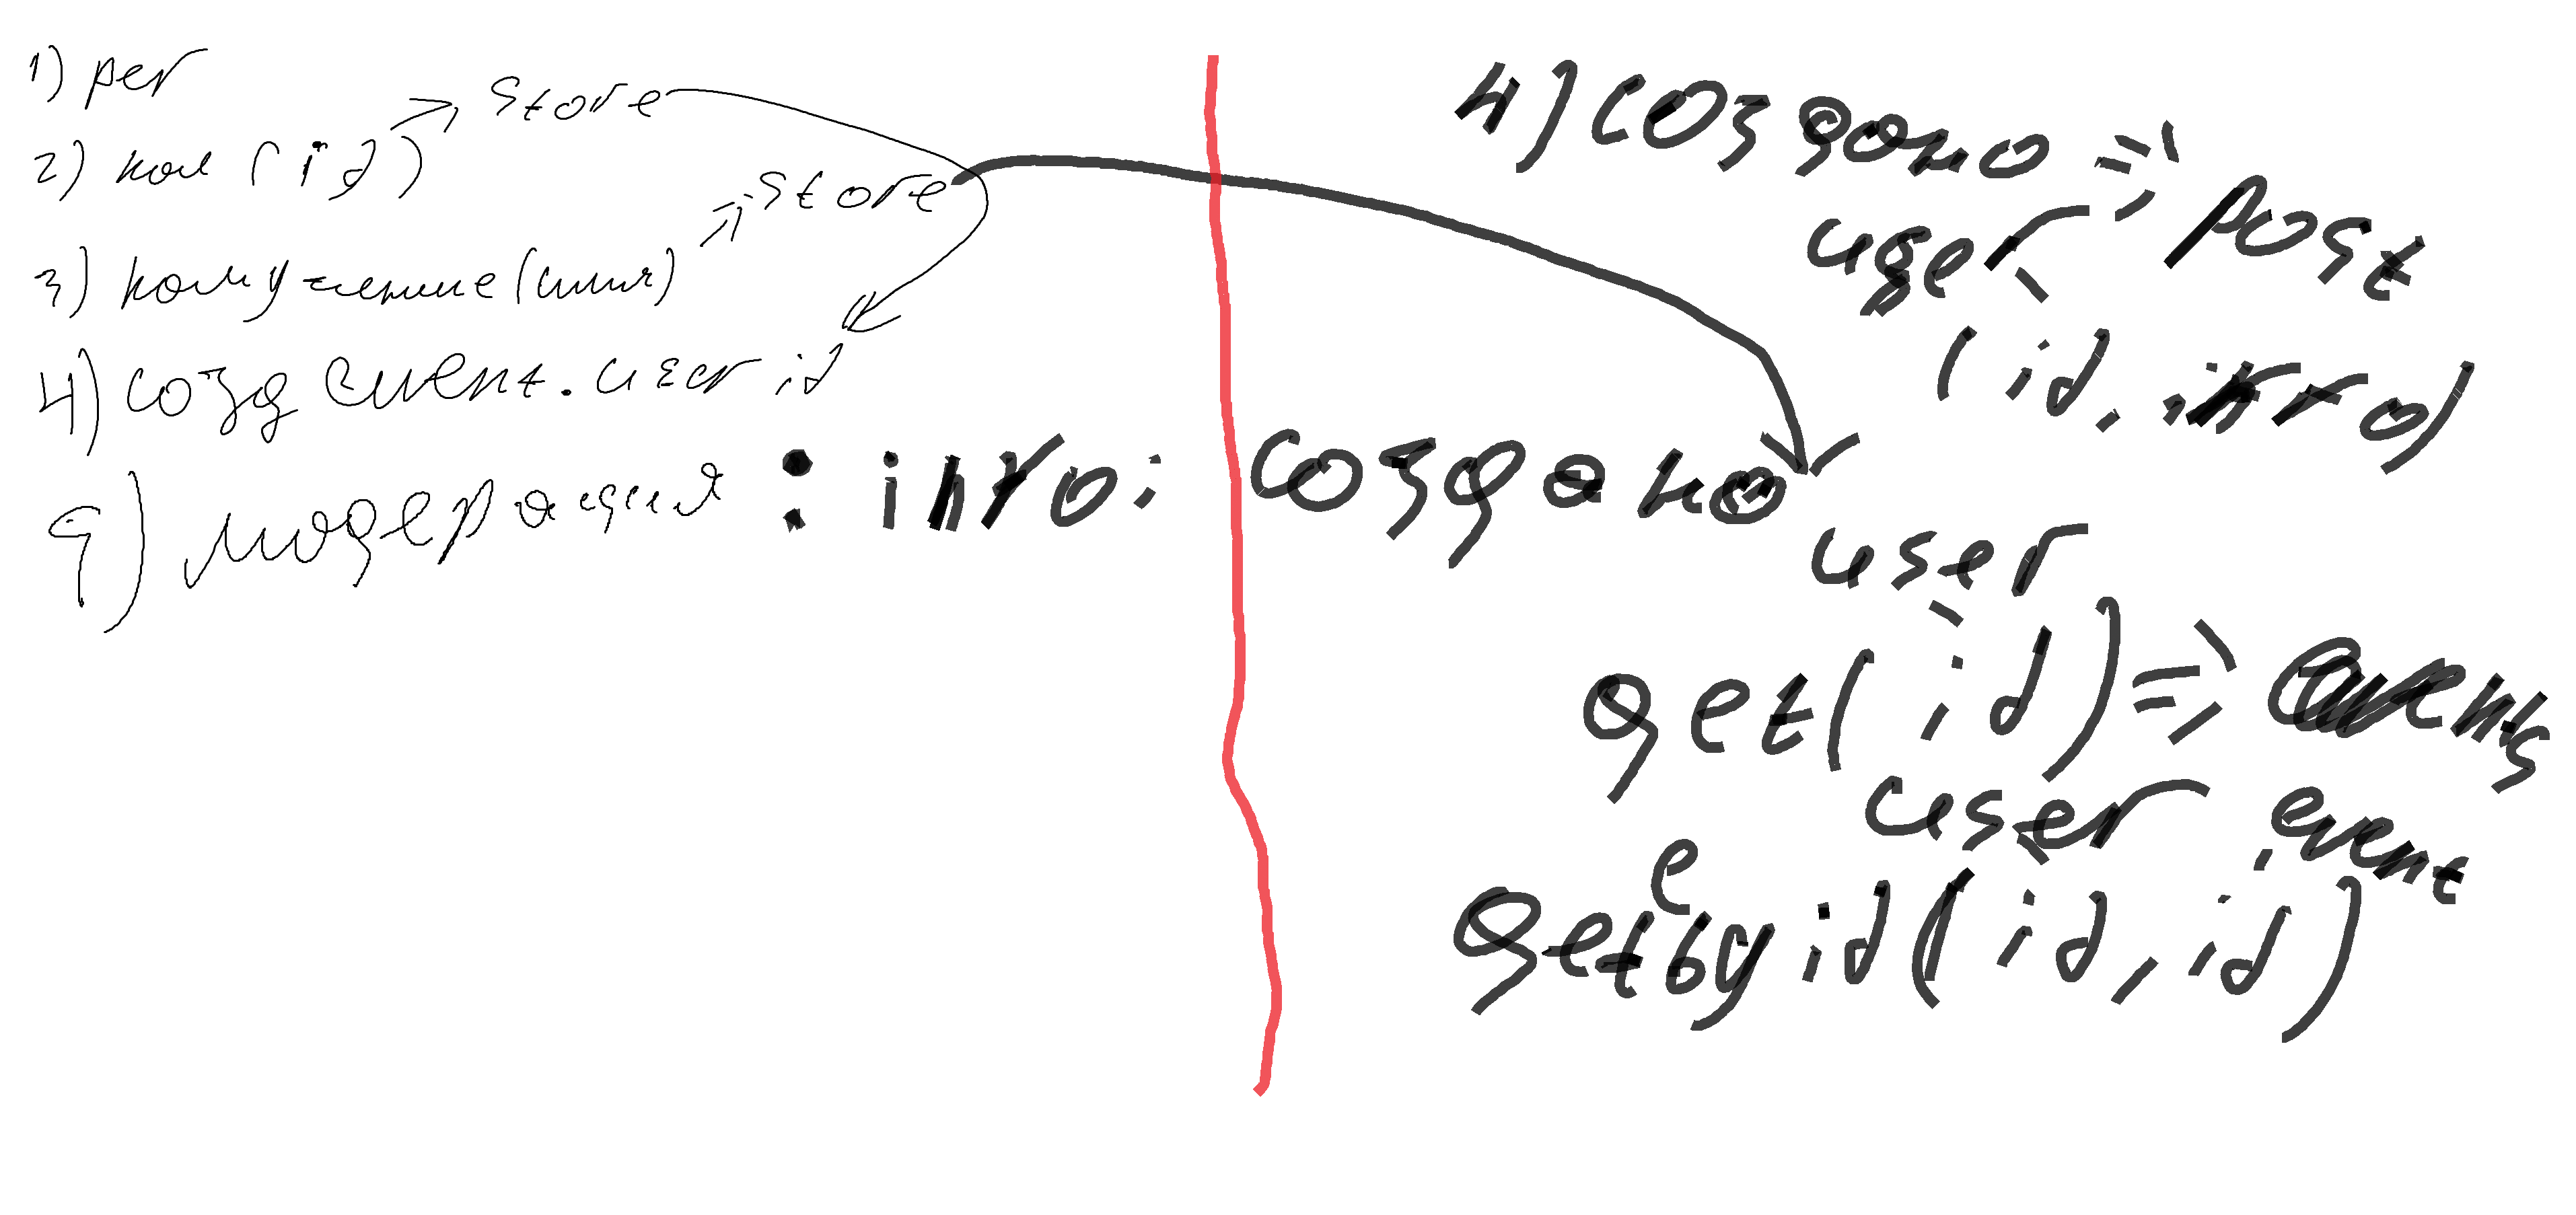 1) рег
2) пол (id) => store
3) получение (имя) => store
4) созд event. user id
5) модерация : info: создано
4) создано => post
user
(id, info)
user
get(id) => events
user event
get by id(id, id)